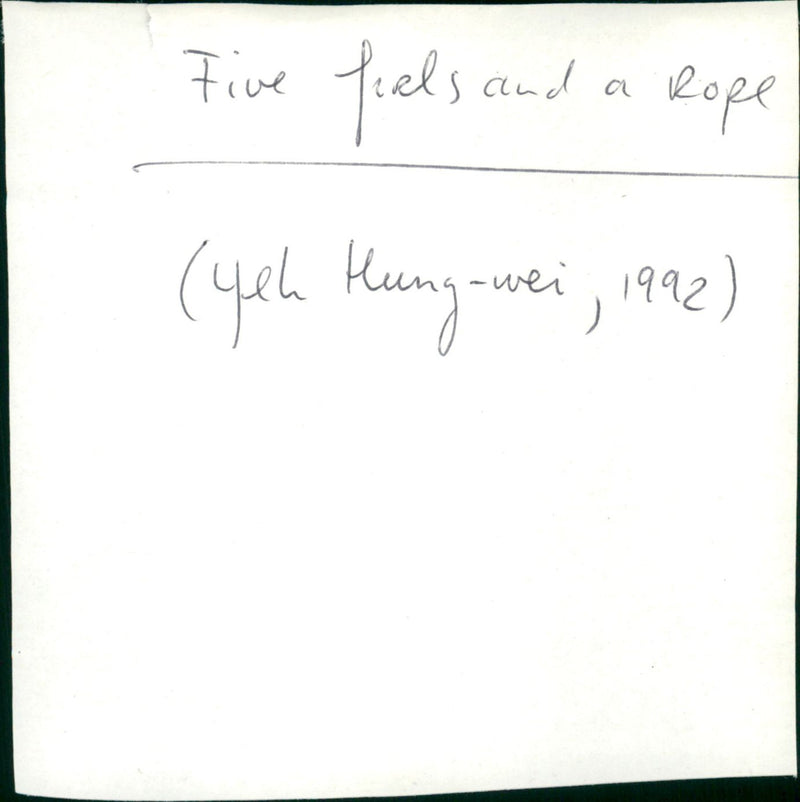 Five girls and a Rope
(Yeh Hung-wei, 1992)